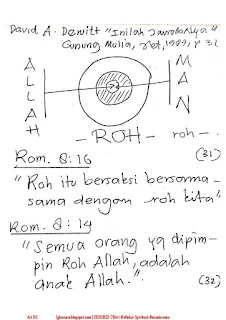 David A. Dewitt "Inilah Jawabannya"
Gunung Mulia, 1989, p 31
ALLAH
MAN
-ROH- roh-.
(31)
Rom. 8:16
"Roh itu bersaksi bersama-
sama dengan roh kita"
Rom. 8:14
"Semua orang yg dipim-
pin Roh Allah, adalah
anak Allah."
(32)